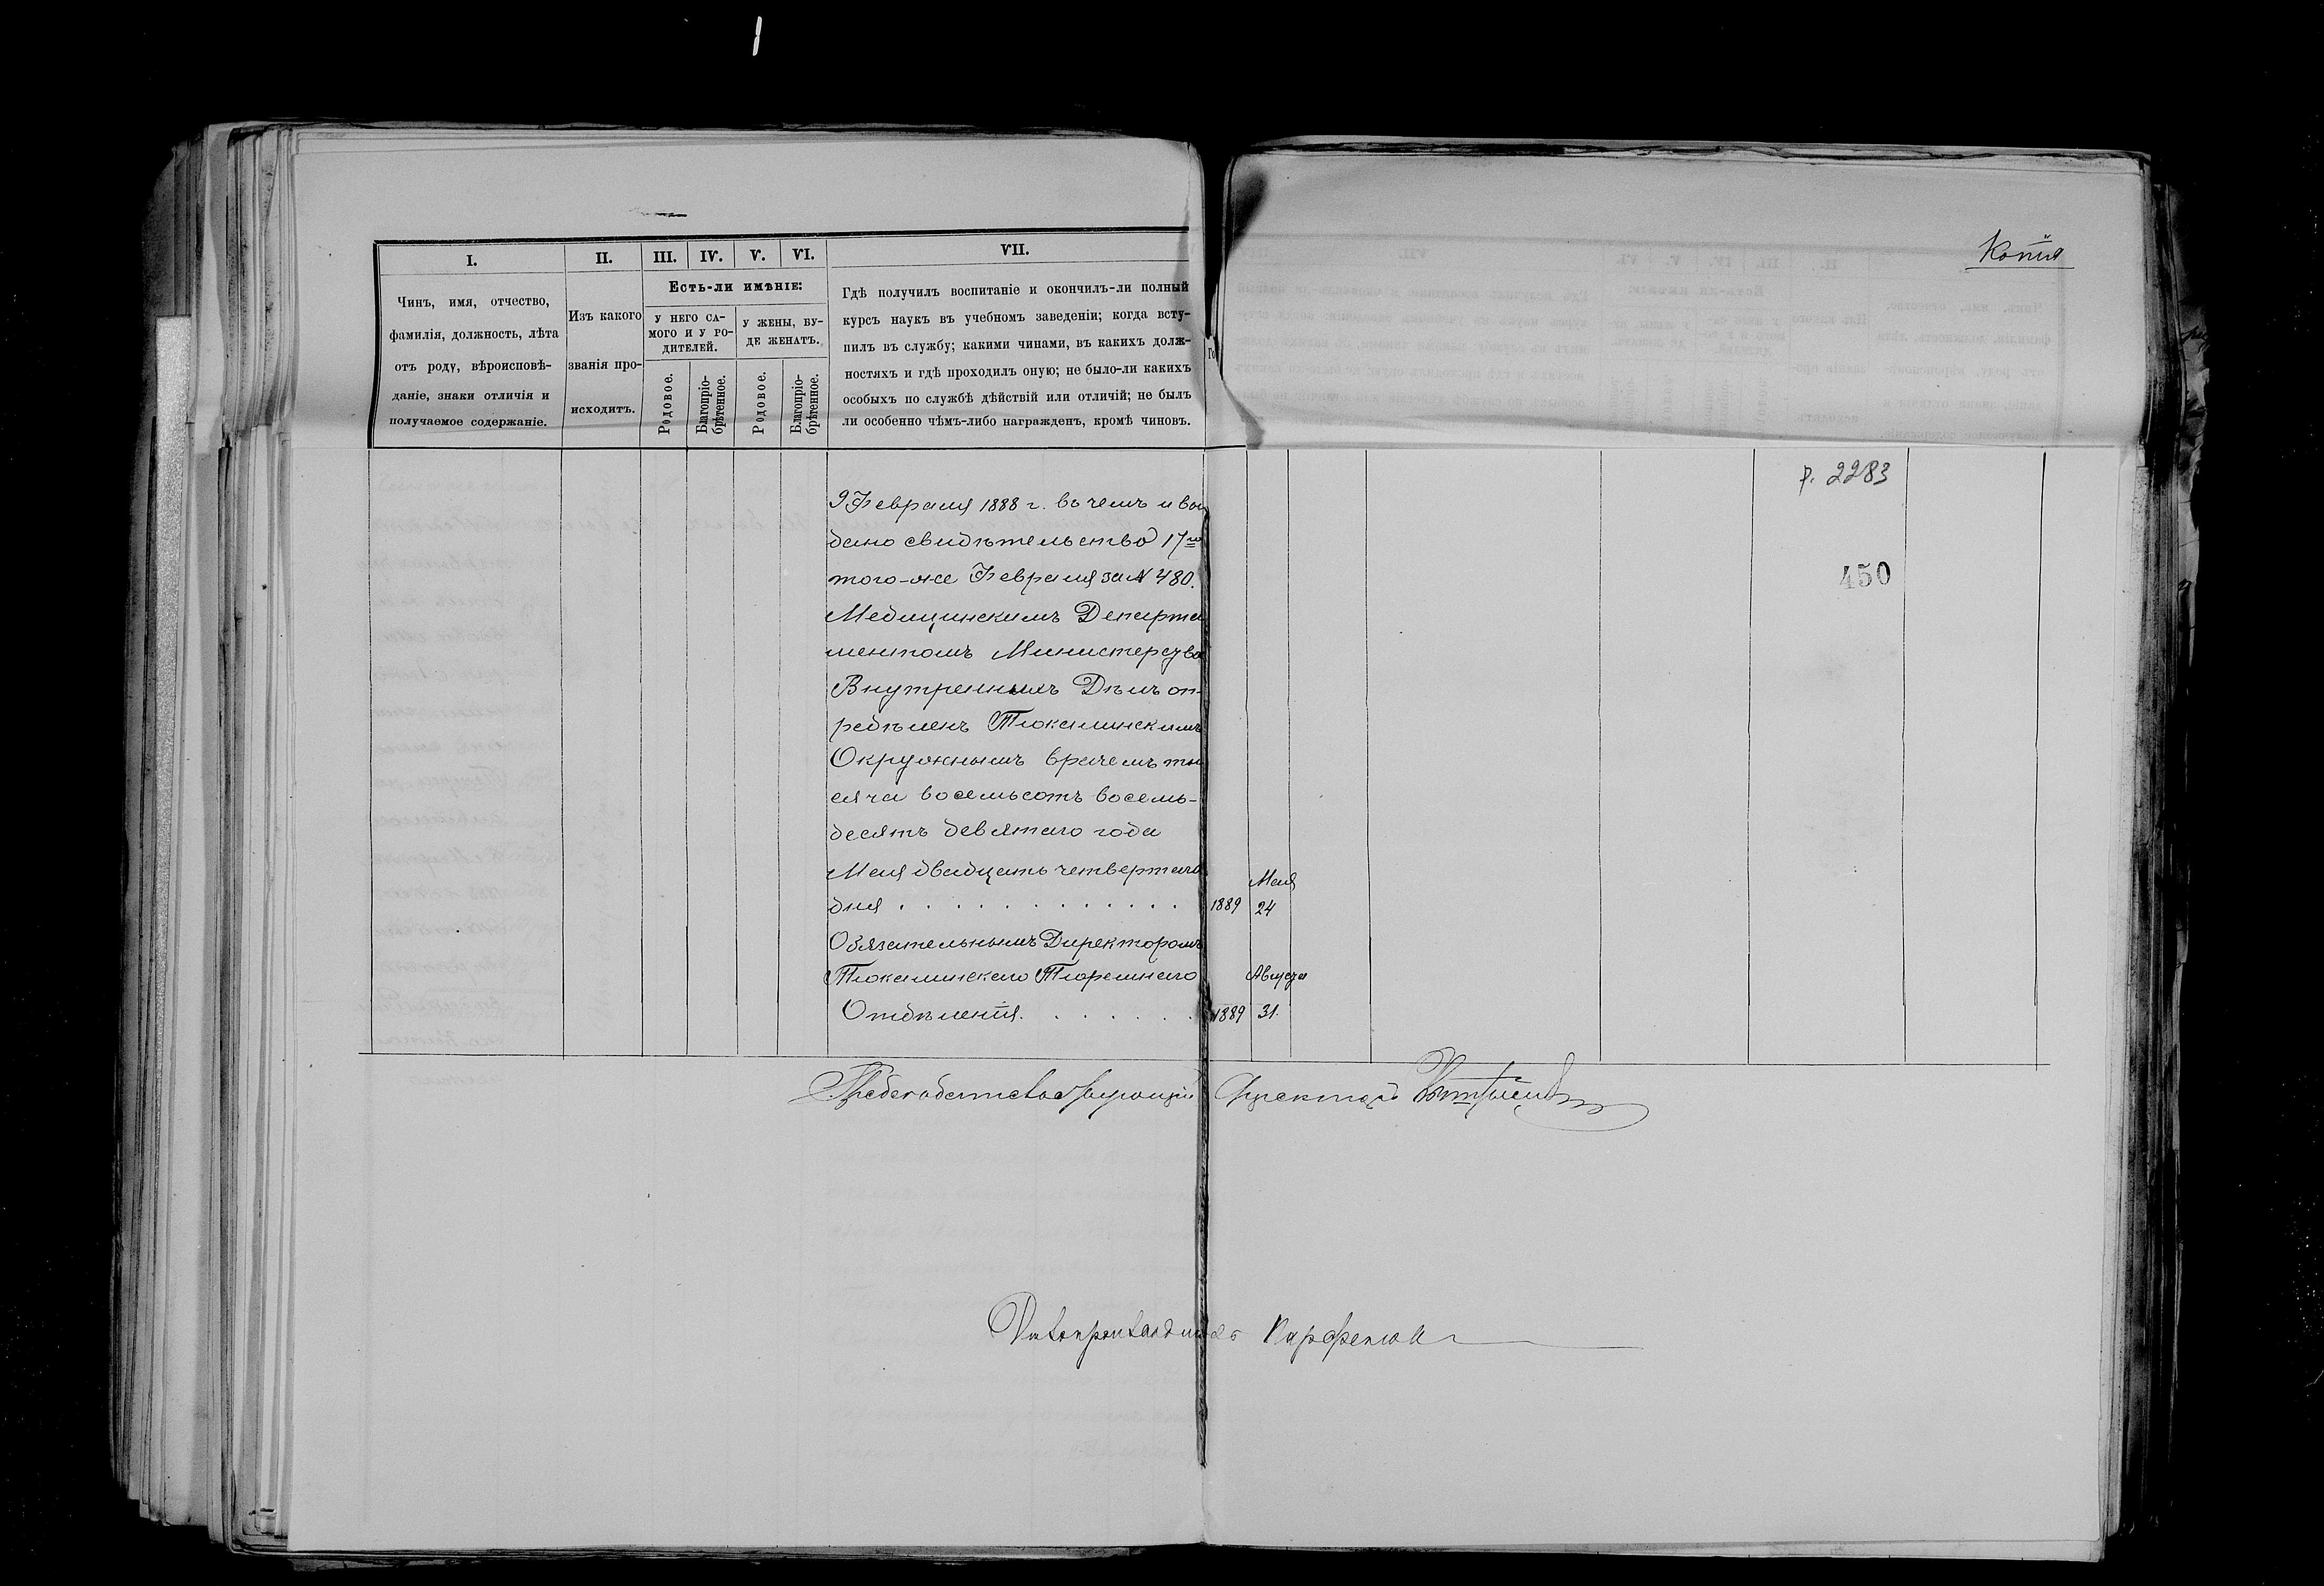 Копія
I.
II.
III.
IV.
V.
VI.
VII.
Чинъ, имя, отчество,
фамилія, должность, лѣта
отъ роду, вѣроисповѣ-
даніе, знаки отличія и
получаемое содержаніе.
Изъ какого
званія про-
исходитъ.
Есть-ли имѣніе:
У НЕГО СА-
МОГО И У РО-
ДИТЕЛЕЙ.
У ЖЕНЫ, БУ-
ДЕ ЖЕНАТЪ.
Родовое.
Благопріо-
брѣтенное.
Родовое.
Благопріо-
брѣтенное.
Гдѣ получилъ воспитаніе и окончилъ-ли полный
курсъ наукъ въ учебномъ заведеніи; когда всту-
пилъ въ службу; какими чинами, въ какихъ долж-
ностяхъ и гдѣ проходилъ оную; не было-ли какихъ
особыхъ по службѣ дѣйствій или отличій; не былъ
ли особенно чѣмъ-либо награжденъ, кромѣ чиновъ.
Го
р. 2283
450
9 Февраля 1888 г. въ чемъ и вы
дано свидѣтельство 17го
того-же Февраля за № 480.
Медицинскимъ Департа
ментомъ Министерства
Внутреннихъ Дѣлъ оп-
редѣленъ Тюкалинскимъ
Окружнымъ врачемъ ты
сяча восемьсотъ восемь-
десятъ девятаго года
Мая двадцать четвертаго
дня . . . . . . . . . . . 1889 Мая 24
Обязательнымъ Директоромъ
Тюкалинскаго Тюремнаго
Отдѣленія. . . . . . . 1889 Августа 31.
Председательствующій Директоръ
Дѣлопроизводитель Парфенов